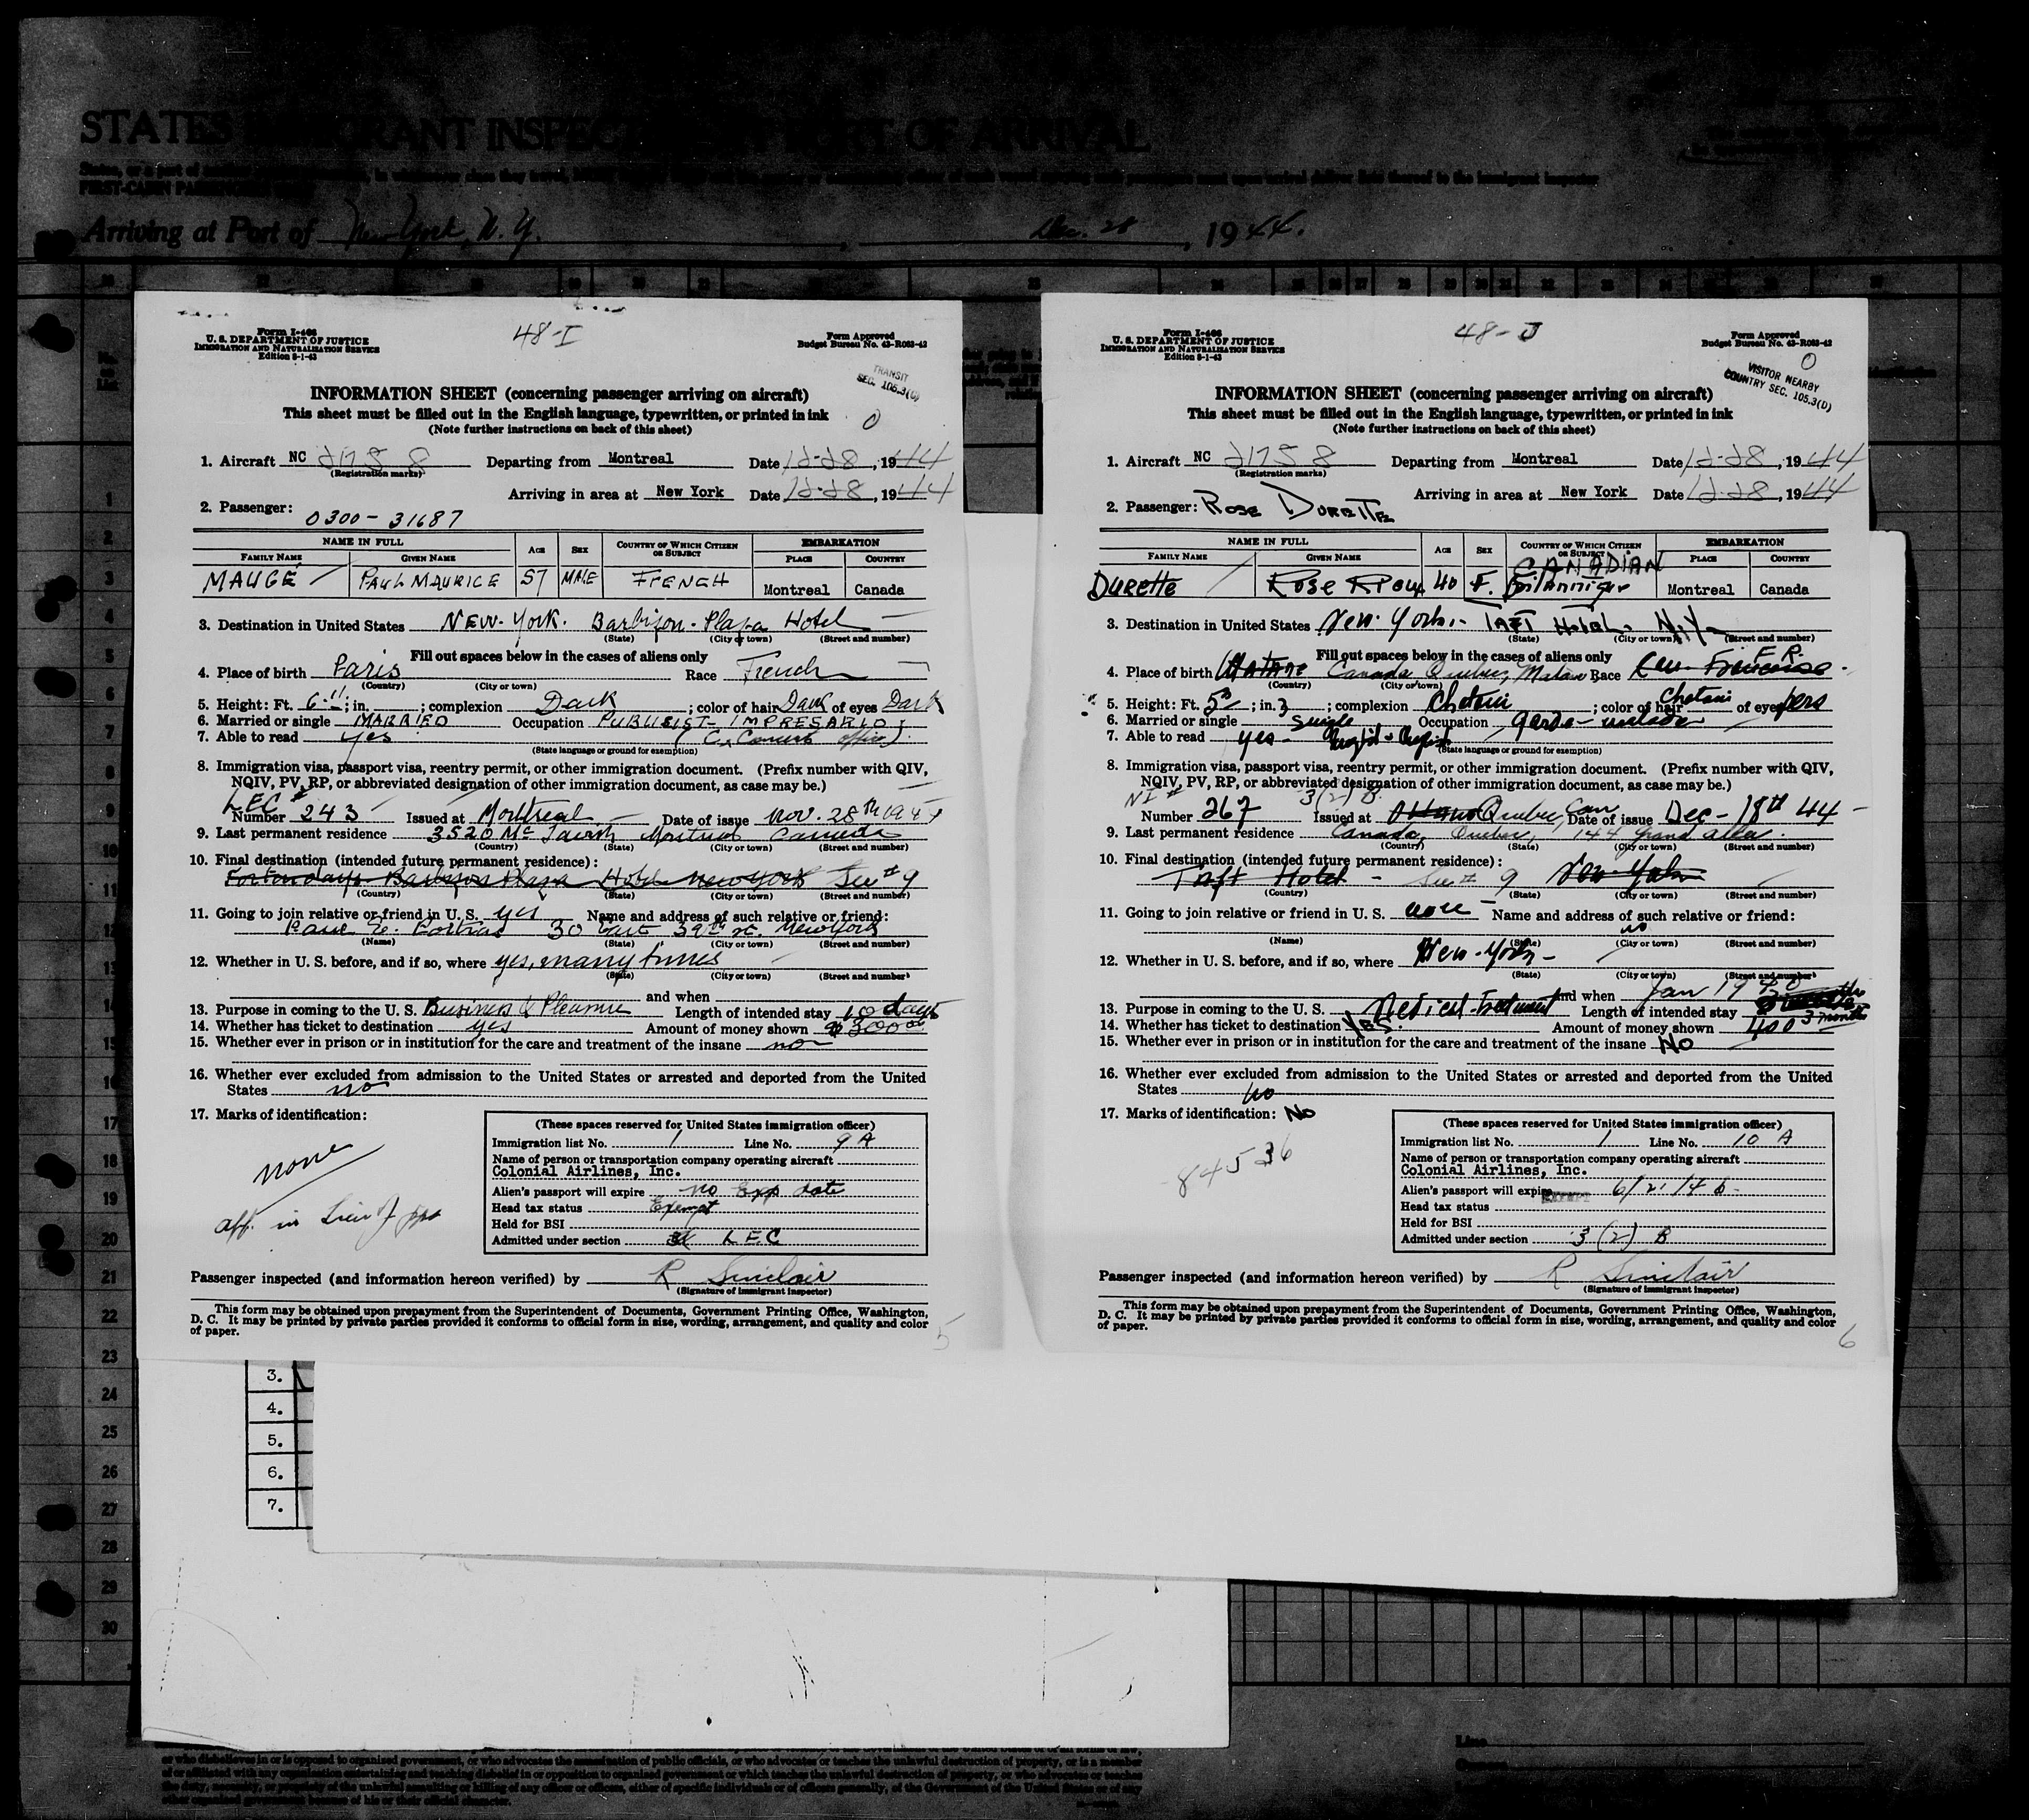 STATES IMMIGRANT INSPECTOR AT PORT OF ARRIVAL
FIRST-CABIN PASSENGERS
Arriving at Port of New York, N.Y. , Dec. 28 , 1944.
Form I-466
U. S. DEPARTMENT OF JUSTICE
IMMIGRATION AND NATURALIZATION SERVICE
Edition 8-1-43
48-I
Form Approved
Budget Bureau No. 43-R083-42
TRANSIT
SEC. 105.3(C)
0
INFORMATION SHEET (concerning passenger arriving on aircraft)
This sheet must be filled out in the English language, typewritten, or printed in ink
(Note further instructions on back of this sheet)
1. Aircraft NC 21758 Departing from Montreal Date 12-28, 1944
(Registration marks)
Arriving in area at New York Date 12-28, 1944
2. Passenger: 0300-31687
NAME IN FULL AGE SEX COUNTRY OF WHICH CITIZEN OR SUBJECT EMBARKATION
FAMILY NAME GIVEN NAME PLACE COUNTRY
MAUGÉ PAUL MAURICE 57 MALE FRENCH Montreal Canada
3. Destination in United States NEW-YORK. Barbizon-Plaza Hotel
(State) (City or town) (Street and number)
Fill out spaces below in the cases of aliens only
4. Place of birth Paris Race French
(Country) (City or town)
5. Height: Ft. 6 ; in. ; complexion Dark ; color of hair Dark of eyes Dark
6. Married or single MARRIED Occupation PUBLICIST-IMPRESARIO
7. Able to read yes (C. Concert office)
(State language or ground for exemption)
8. Immigration visa, passport visa, reentry permit, or other immigration document. (Prefix number with QIV,
NQIV, PV, RP, or abbreviated designation of other immigration document, as case may be.)
LEC #
Number 243 Issued at Montreal Date of issue Nov. 28th 1944
9. Last permanent residence 3520 Mc Tavish Montreal Canada
(Country) (State) (City or town) (Street and number)
10. Final destination (intended future permanent residence):
For ten days Barbizon Plaza Hotel New York See #9
(Country) (State) (City or town) (Street and number)
11. Going to join relative or friend in U. S. yes Name and address of such relative or friend:
30 East 39th st. New York
(Name) (State) (City or town) (Street and number)
12. Whether in U. S. before, and if so, where yes, many times
(State) (City or town) (Street and number)
and when
13. Purpose in coming to the U. S. Business & Pleasure Length of intended stay 10 days
14. Whether has ticket to destination yes Amount of money shown $300.00
15. Whether ever in prison or in institution for the care and treatment of the insane no
16. Whether ever excluded from admission to the United States or arrested and deported from the United
States no
17. Marks of identification:
none
aff. in lieu of ppt
(These spaces reserved for United States immigration officer)
Immigration list No. 1 Line No. 9 A
Name of person or transportation company operating aircraft
Colonial Airlines, Inc.
Alien's passport will expire no Exp date
Head tax status Exempt
Held for BSI
Admitted under section LEC
Passenger inspected (and information hereon verified) by R Sinclair
(Signature of immigrant inspector)
This form may be obtained upon prepayment from the Superintendent of Documents, Government Printing Office, Washington,
D. C. It may be printed by private parties provided it conforms to official form in size, wording, arrangement, and quality and color
of paper.
5
Form I-466
U. S. DEPARTMENT OF JUSTICE
IMMIGRATION AND NATURALIZATION SERVICE
Edition 8-1-43
48-J
Form Approved
Budget Bureau No. 43-R083-42
0
VISITOR NEARBY
COUNTRY SEC. 105.3(D)
INFORMATION SHEET (concerning passenger arriving on aircraft)
This sheet must be filled out in the English language, typewritten, or printed in ink
(Note further instructions on back of this sheet)
1. Aircraft NC 21758 Departing from Montreal Date 12-28, 1944
(Registration marks)
Arriving in area at New York Date 12-28, 1944
2. Passenger: ROSE DURETTE
NAME IN FULL AGE SEX COUNTRY OF WHICH CITIZEN OR SUBJECT EMBARKATION
FAMILY NAME GIVEN NAME PLACE COUNTRY
CANADIAN
DURETTE Rose 40 F. Montreal Canada
3. Destination in United States New-York.- TAFT HOTEL. N.Y-
(State) (City or town) (Street and number)
Fill out spaces below in the cases of aliens only
FR.
4. Place of birth Matane Canada Quebec, Matane Race
(Country) (City or town)
5. Height: Ft. 5 ; in. 3 ; complexion Chatain ; color of hair Chatain of eyes pers
6. Married or single single Occupation garde-malade
7. Able to read yes-
(State language or ground for exemption)
8. Immigration visa, passport visa, reentry permit, or other immigration document. (Prefix number with QIV,
NQIV, PV, RP, or abbreviated designation of other immigration document, as case may be.)
NI # 3(2) B.
Number 267 Issued at Ottawa Quebec, Can Date of issue Dec-18th 44
9. Last permanent residence Canada, Quebec, 144 Grand allee.
(Country) (State) (City or town) (Street and number)
10. Final destination (intended future permanent residence):
Taft Hotel - See # 9 New-York
(Country) (State) (City or town) (Street and number)
11. Going to join relative or friend in U. S. none Name and address of such relative or friend:
no
(Name) (State) (City or town) (Street and number)
12. Whether in U. S. before, and if so, where New-York-
(State) (City or town) (Street and number)
and when Jan 1940
13. Purpose in coming to the U. S. Medical-Treatment Length of intended stay 3 months
14. Whether has ticket to destination YES. Amount of money shown 400
15. Whether ever in prison or in institution for the care and treatment of the insane NO
16. Whether ever excluded from admission to the United States or arrested and deported from the United
States no
17. Marks of identification: NO
84536
(These spaces reserved for United States immigration officer)
Immigration list No. 1 Line No. 10 A
Name of person or transportation company operating aircraft
Colonial Airlines, Inc.
Alien's passport will expire 6/21/46
EXEMPT
Head tax status
Held for BSI
Admitted under section 3 (2) B
Passenger inspected (and information hereon verified) by R Sinclair
(Signature of immigrant inspector)
This form may be obtained upon prepayment from the Superintendent of Documents, Government Printing Office, Washington,
D. C. It may be printed by private parties provided it conforms to official form in size, wording, arrangement, and quality and color
of paper.
6
1
2
3
4
5
6
7
8
9
10
11
12
13
14
15
16
17
18
19
20
21
22
23
24
25
26
27
28
29
30
3.
4.
5.
6.
7.
Line